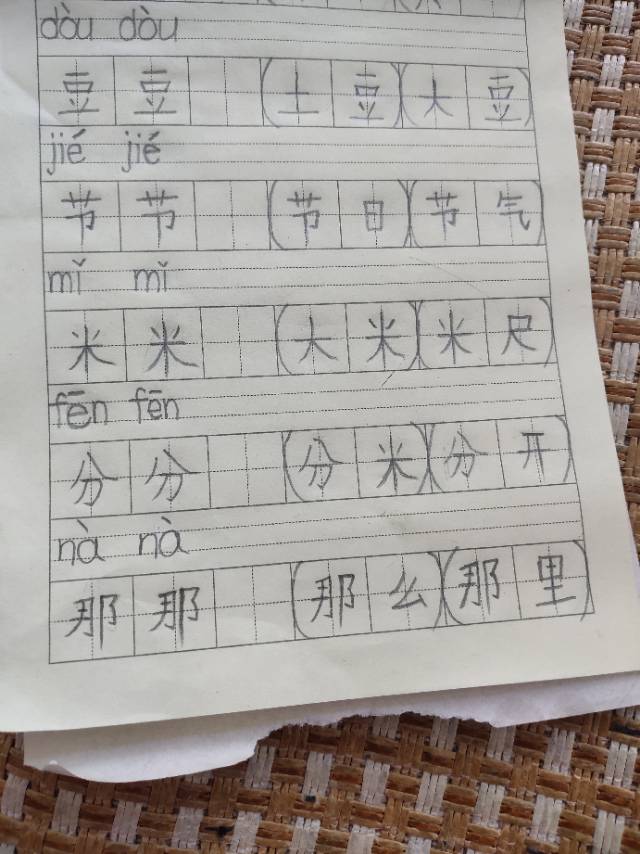 dòu dòu
豆 豆 (土 豆)(大 豆)
jié jié
节 节 (节 日)(节 气)
mǐ mǐ
米 米 (大 米)(米 尺)
fēn fēn
分 分 (分 米)(分 开)
nà nà
那 那 (那 么)(那 里)